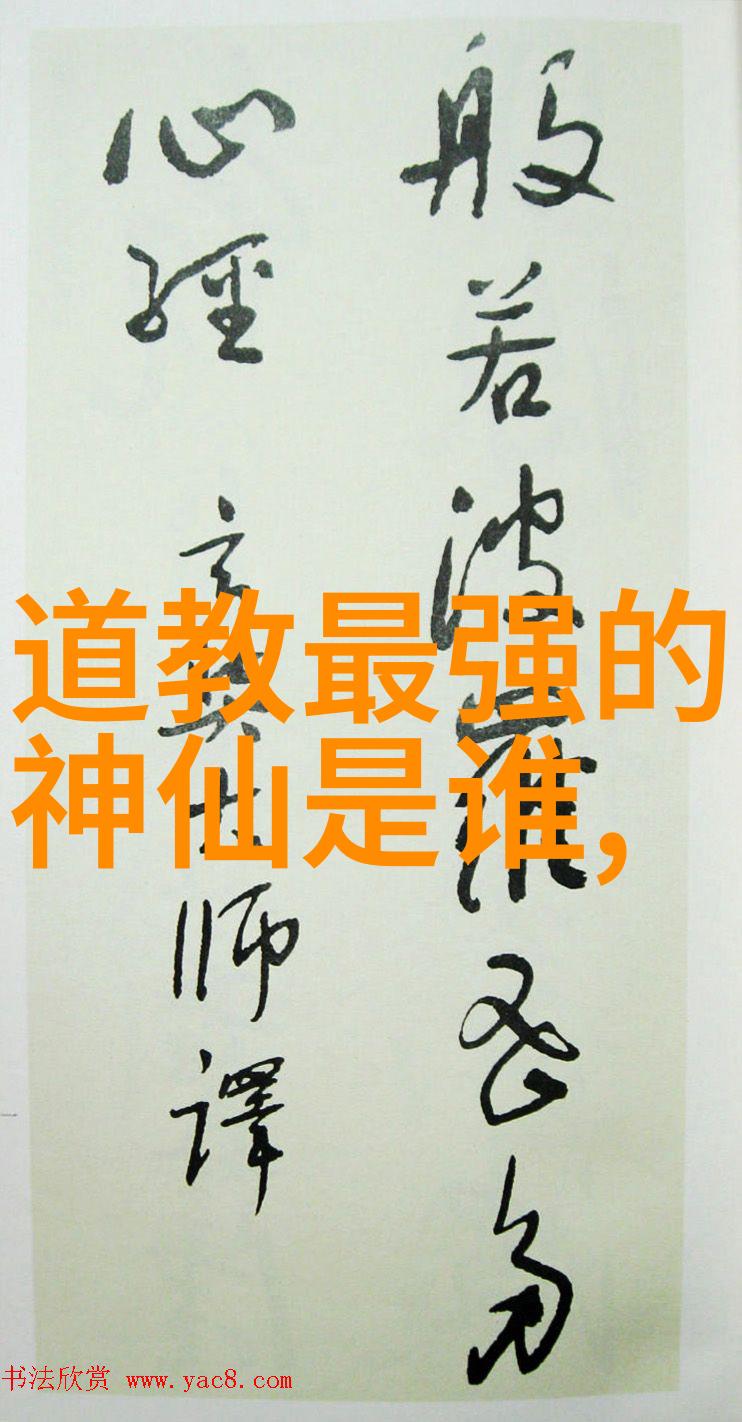 般若波羅蜜多
心經 玄奘大師譯
道教最强的
神仙是谁,
书法欣赏 www.yac8.com